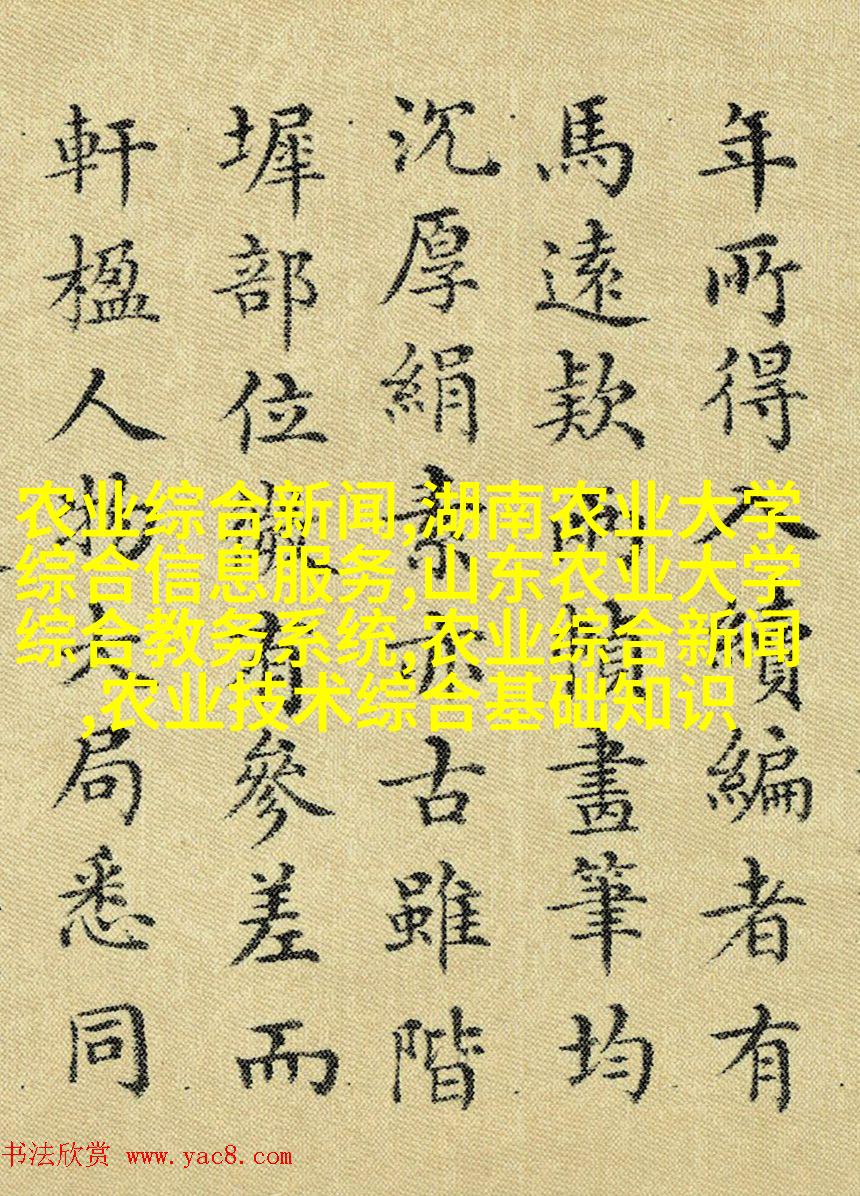 年所得入續編者有
馬遠款兩畫筆均
沉厚絹素亦古雖階
墀部位有參差而
軒楹人物大局悉同
农业综合新闻,湖南农业大学
综合信息服务,山东农业大学
综合教务系统,农业综合新闻
,农业技术综合基础知识
书法欣赏 www.yac8.com